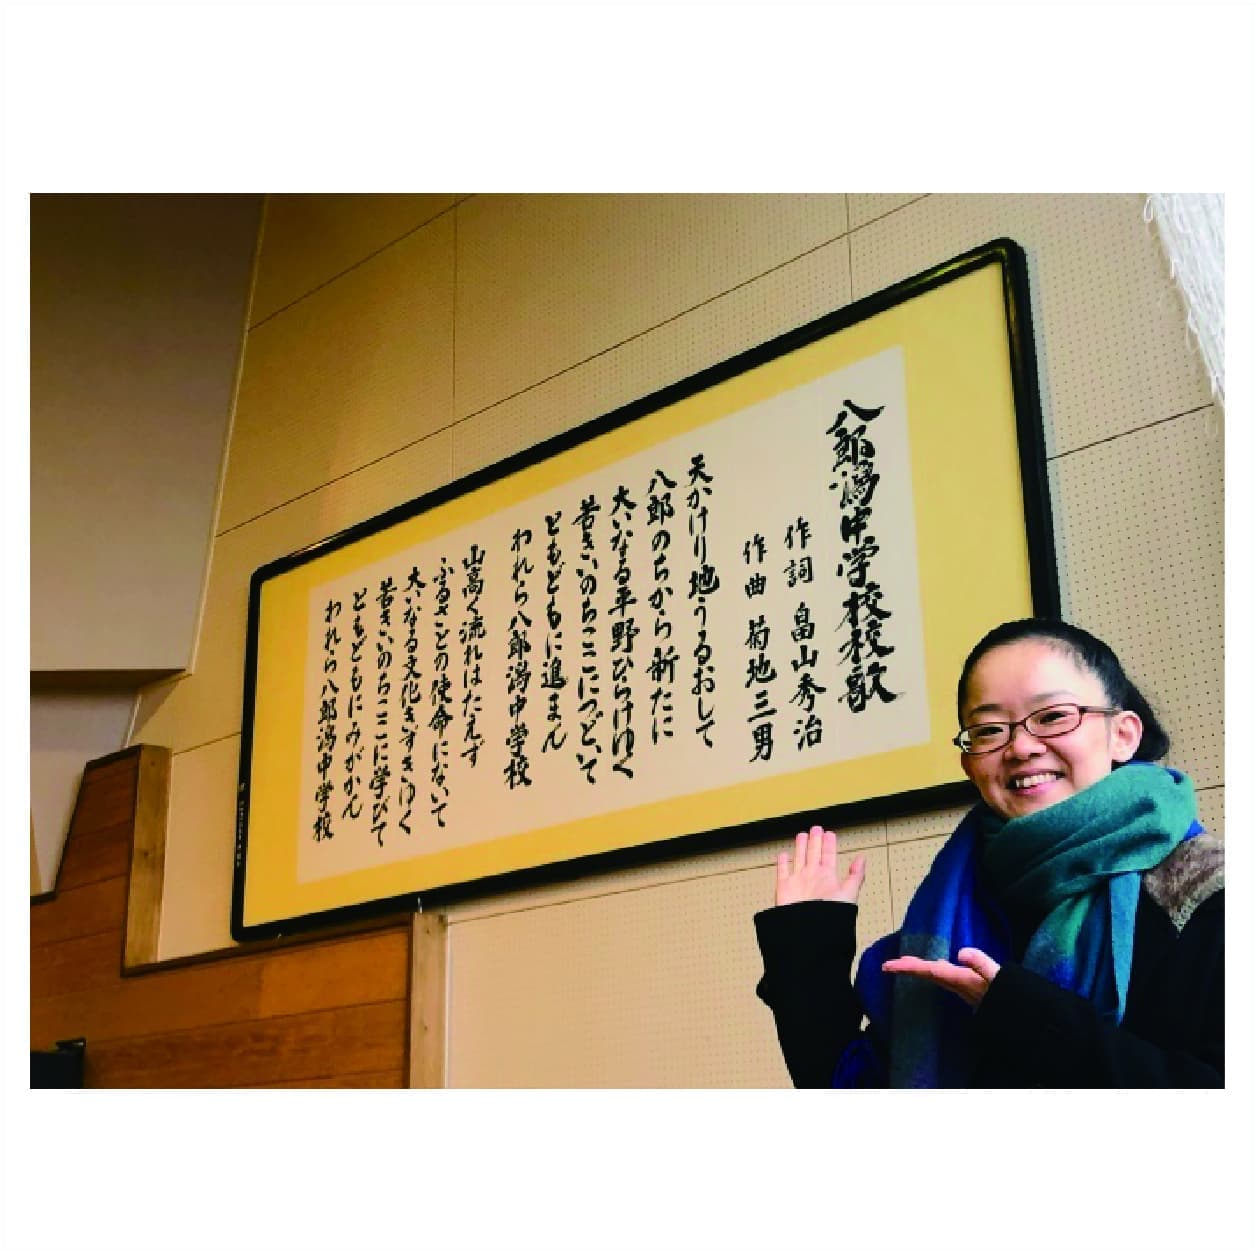 八郎潟中学校校歌
作詞 畠山秀治
作曲 菊地三男
天かけり地うるおして
八郎のちから新たに
大いなる平野ひらけゆく
若きいのちここにつどいて
ともどもに進まん
われら八郎潟中学校
山高く流れはたえず
ふるさとの使命にないて
大いなる文化きずきゆく
若きいのちここに学びて
ともどもにみがかん
われら八郎潟中学校